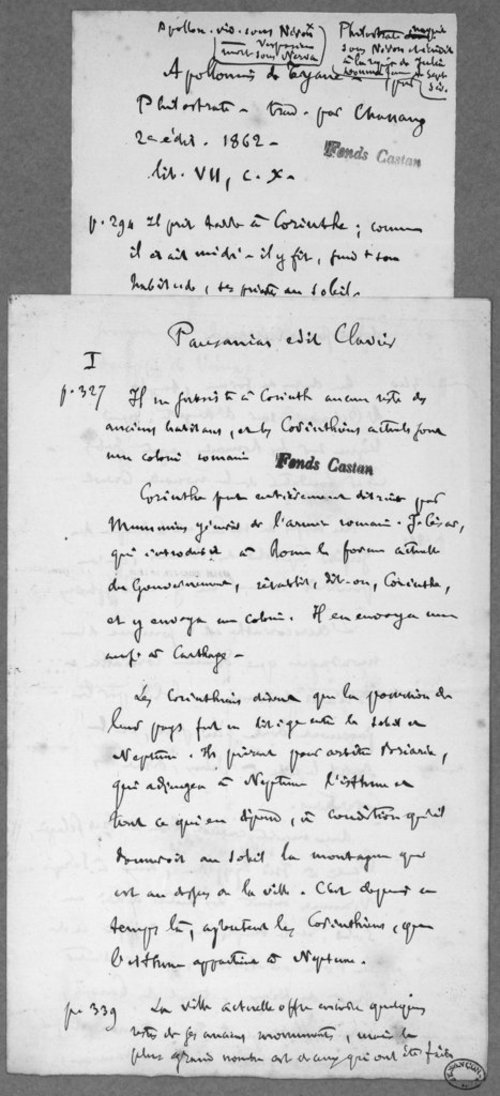 Apollon. vid. sous Néron
Vespasien
mort sous Nerva
Philostrate naquit
sous Néron
à la
Sept
Sév.
Apollonius de Tyane - par
Philostrate - trad. par Chassang
2e édit. 1862 -
Fonds Castan
lib. VII, c. X -
p. 294 Il prit terre à Corinthe ; comme
il était midi - il y fit, suivt son
habitude, ses prières au soleil -
Pausanias edit Clavier
I
p. 327 Il ne subsiste à Corinthe aucun reste des
anciens habitans, et les Corinthiens actuels sont
une colonie romaine
Fonds Castan
Corinthe fut entièrement détruite par
Mummius général de l'armée romaine. J. César,
qui introduisit à Rome la forme actuelle
du Gouvernement, rétablit, dit-on, Corinthe,
et y envoya une colonie. Il en envoya une
aussi à Carthage -
Les Corinthiens disent que la possession de
leur pays fut en litige entre le Soleil et
Neptune. Ils prirent pour arbitre Briarée,
qui adjugea à Neptune l'isthme et
tout ce qui en dépend, à condition qu'il
donneroit au Soleil la montagne qui
est au dessus de la ville. C'est depuis ce
temps là, ajoutent les Corinthiens, que
l'isthme appartient à Neptune.
p. 339 La ville actuelle offre encore quelques
restes de ses anciens monuments, mais le
plus grand nombre est de ceux qui ont été faits